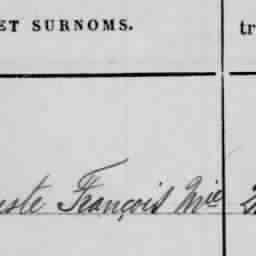 ET SURNOMS. tr
uste François Mie